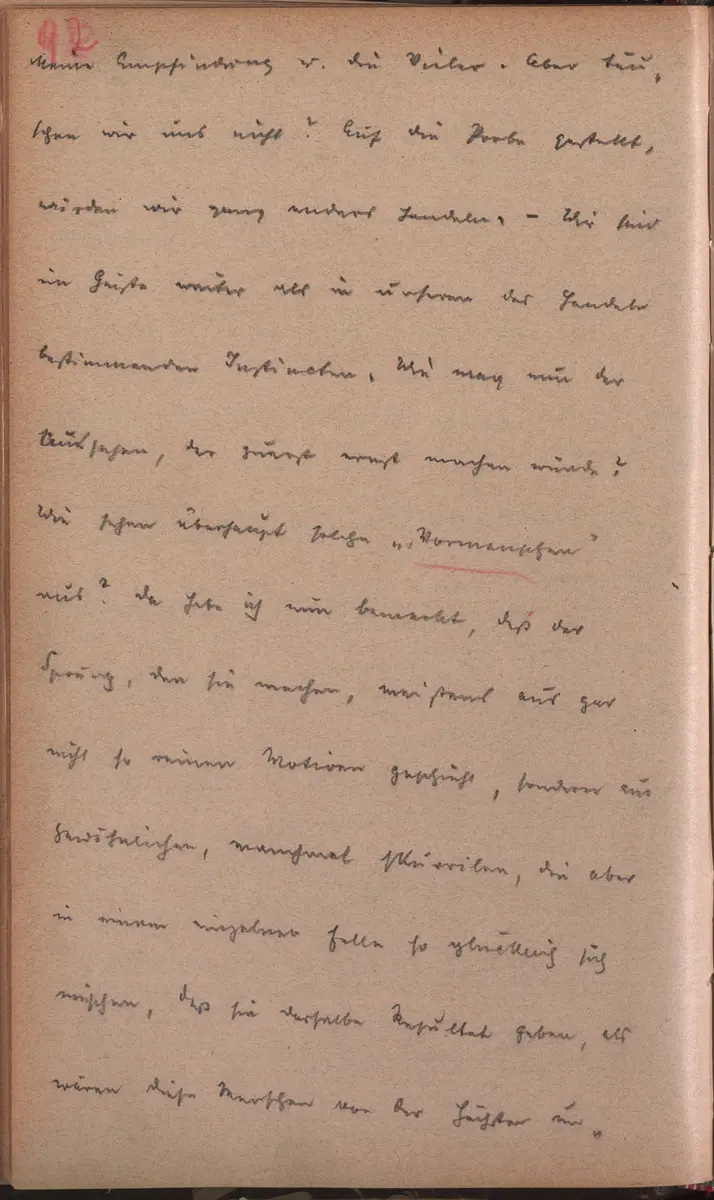 92
Meine Empfindung u. die Vieler. Aber täu-
schen wir uns nicht? Auf die Probe gestellt,
würden wir ganz anders handeln. – Wir sind
im Geiste weiter als in unseren das Handeln
bestimmenden Instincten. Wie mag nun der
aussehen, der zuerst ernst machen würde?
Wie sehen überhaupt solche „Vormenschen"
aus? Da habe ich nun bemerkt, daß der
Sprung, den sie machen, meistens aus gar
nicht so reinen Motiven geschieht, sondern aus
gewöhnlichen, manchmal skurrilen, die aber
in einem einzelnen Falle so glücklich sich
mischen, daß sie dasselbe Resultat geben, als
wären diese Menschen von der höchsten un-